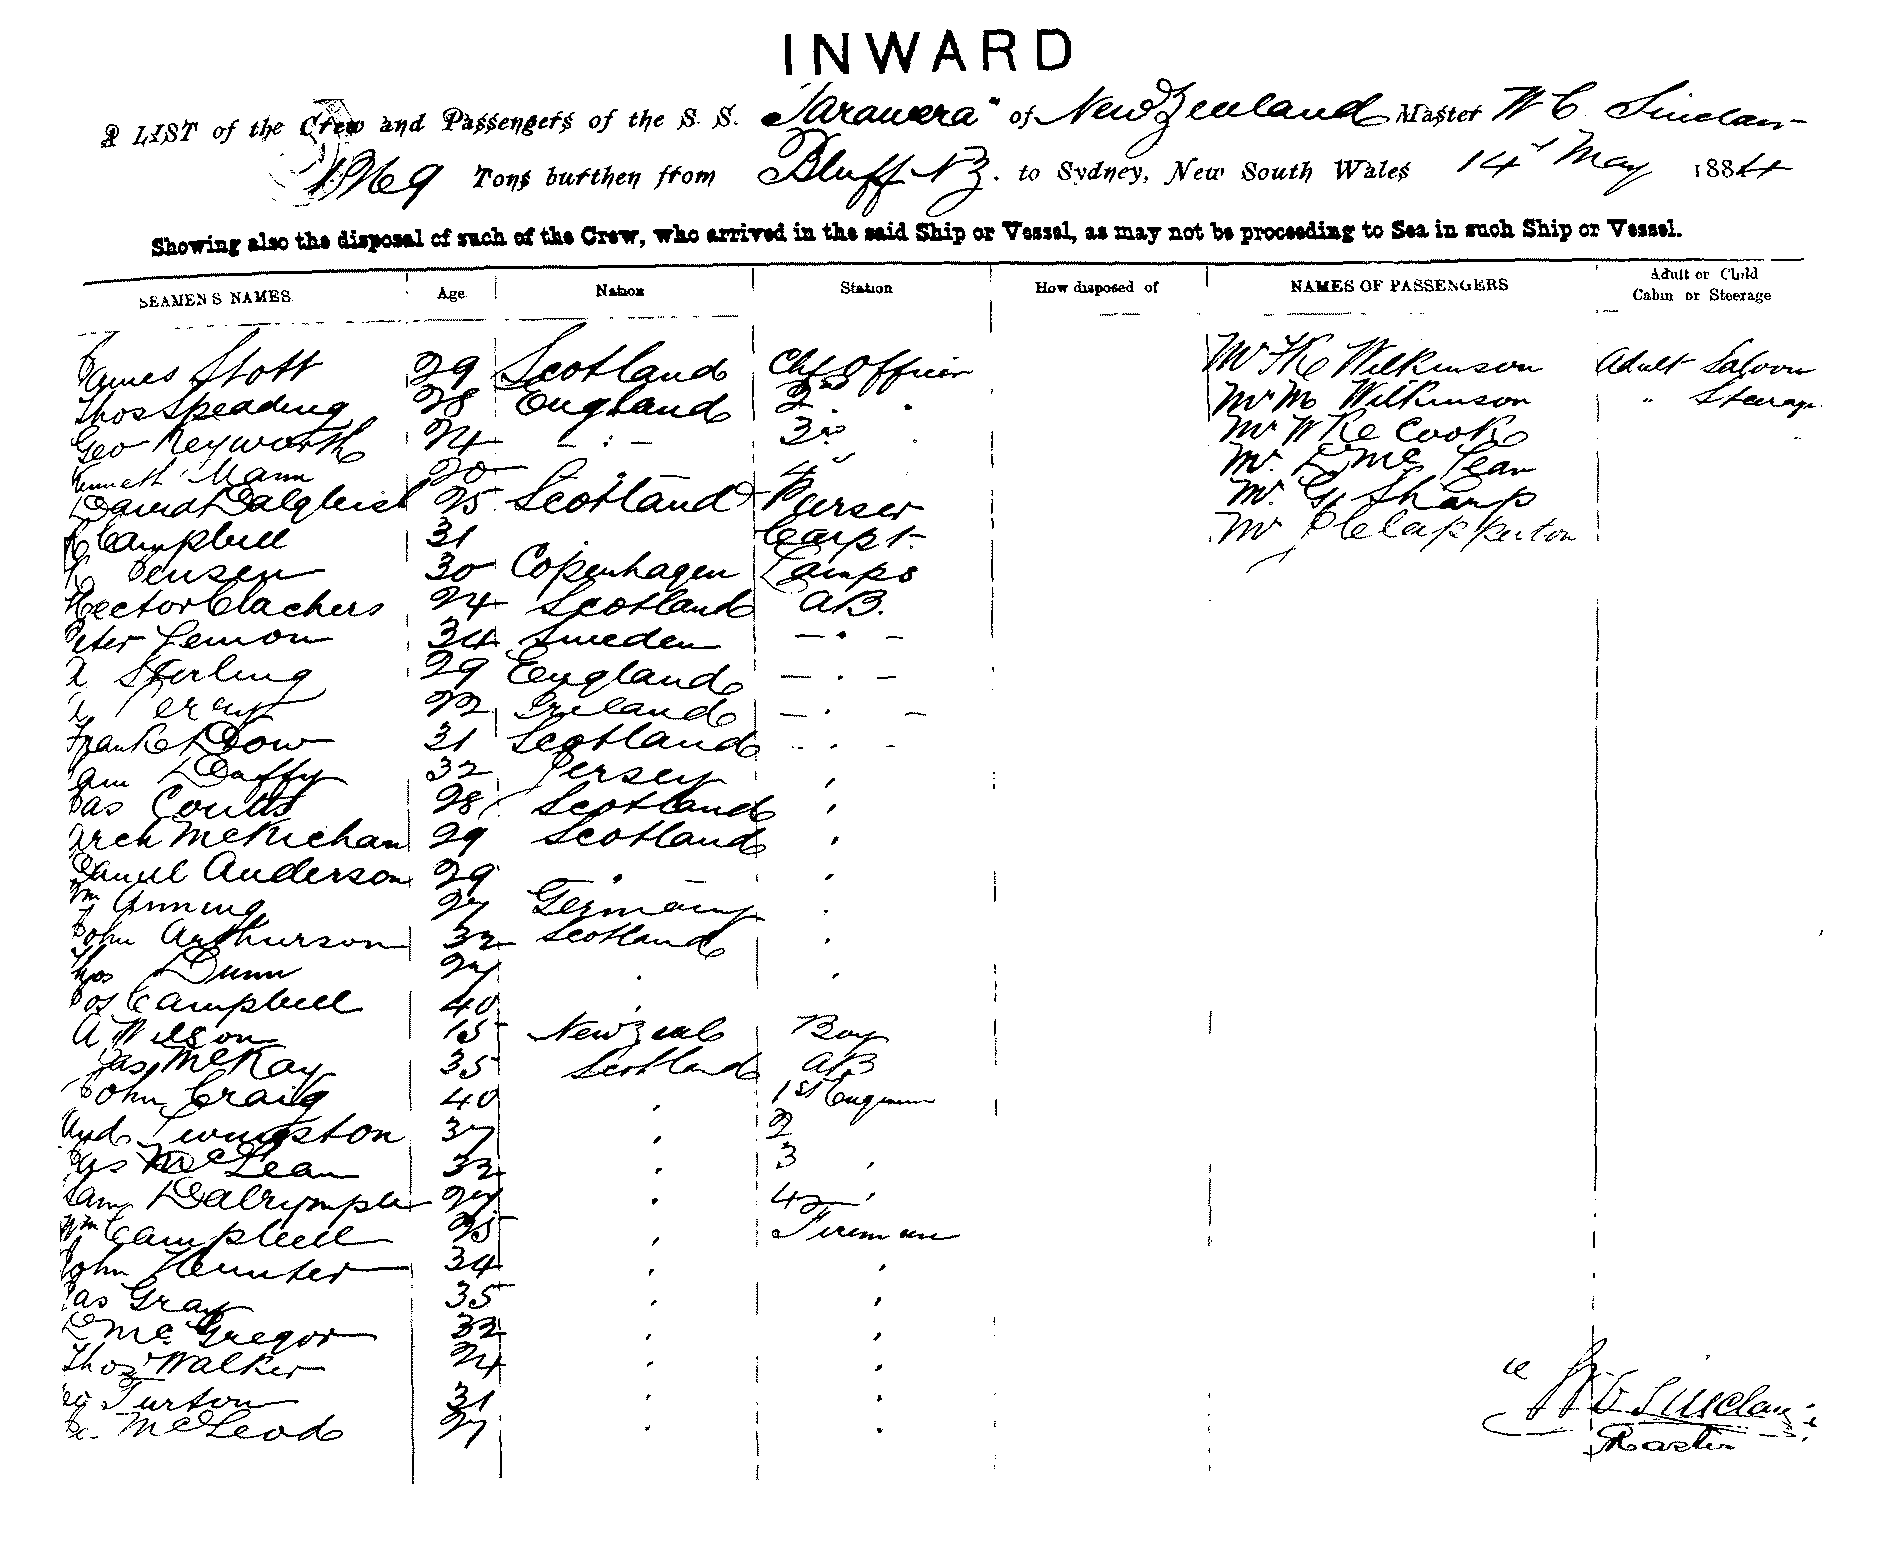 INWARD
A LIST of the Crew and Passengers of the S. S. "Tarawera" of New Zealand Master W C Sinclair
1269 Tons burthen from Bluff N Z. to Sydney, New South Wales 14 May 1884
Showing also the disposal of such of the Crew, who arrived in the said Ship or Vessel, as may not be proceeding to Sea in such Ship or Vessel.
SEAMEN'S NAMES Age Nation Station How disposed of NAMES OF PASSENGERS Adult or Child Cabin or Steerage
James Stott 29 Scotland Chf Officer Mr Wilkinson Adult Saloon
Thos Speading 28 England 2nd " Mr M Wilkinson " Steerage
Geo Keyworth 24 - " - 3rd " Mr W Cook
Kenneth Mann 20 " 4 " Mr. McLean
David Dalgleish 25 Scotland Purser Mr. G. Sharp
Campbell 31 Carpt. Mr Clapperton
Jensen 30 Copenhagen Lamps
Hector Clachers 24 Scotland AB.
Peter Lemon 34 Sweden - " -
Sterling 29 England - " -
22 Ireland - " -
Frank Dow 31 Scotland - " -
Sam Duffy 32 Jersey "
Jas Coutts 28 Scotland "
Arch McKichan 29 Scotland "
Daniel Anderson 29 " "
Wm Anning 27 Germany "
John Arthurson 32 Scotland "
Thos Dunn 27 " "
Jos Campbell 40 "
A Wilson 15 New Zeal Boy
Jas McKay 35 Scotland AB
John Craig 40 " 1st Engineer
And Livingston 37 " 2
Jas McLean 32 " 3 "
Sam Dalrymple 27 " 4 "
Wm Campbell 25 " Fireman
John Hunter 34 " "
Jas Gray 35 " "
D McGregor 32 " "
Thos Walker 24 " "
Turton 31 " "
McLeod 27 " "
W C Sinclair
Master